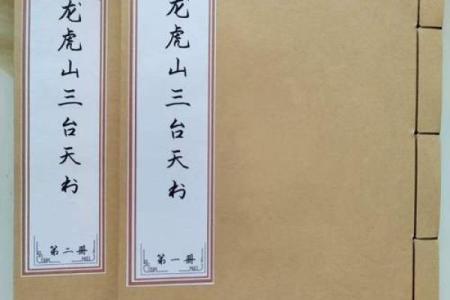 龙虎山三台天书
第一册
龙虎山三台天书
第二册